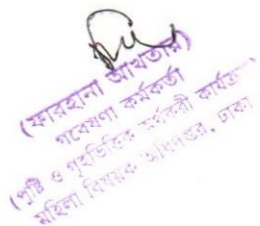 (ফারহানা আখতার)
গবেষণা কর্মকর্তা
(পুষ্টি ও গৃহভিত্তিক অর্থকরী কার্যক্রম
মহিলা বিষয়ক অধিদপ্তর, ঢাকা